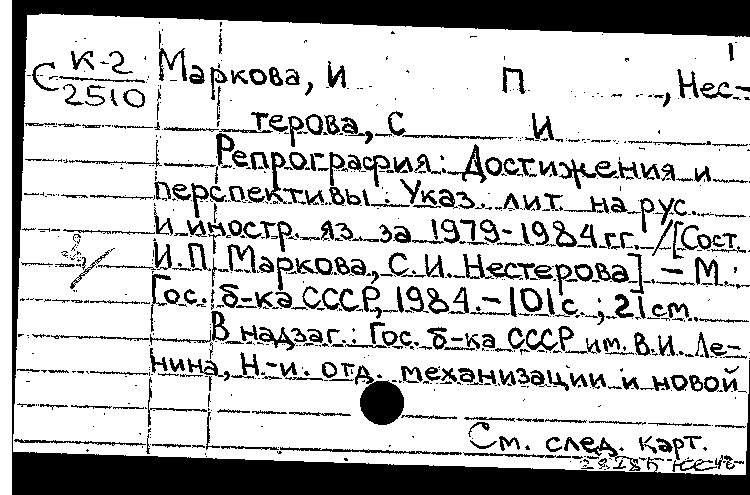 1
С К-2
2510
Маркова, И П , Нес-
терова, С И
Репрография: Достижения и
перспективы: Указ. лит. на рус.
и иностр. яз. за 1979-1984 гг. /[Сост.
И.П. Маркова, С.И. Нестерова] - М.:
Гос. б-ка СССР, 1984.-101с.; 21см.
В надзаг.: Гос. б-ка СССР им. В.И. Ле-
нина, Н.-и. отд. механизации и новой
См. след. карт.